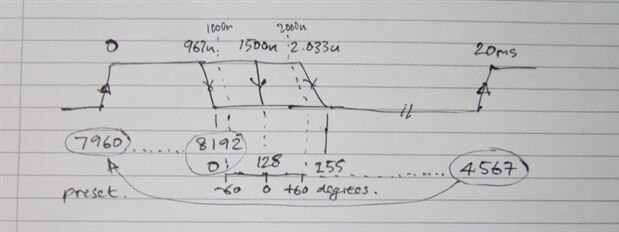 1000u 2000u
0 967u 1500u 2.033u 20ms
7960 ..... 8192
0 128 255 ....... 4567
preset. -60 0 +60 degrees.